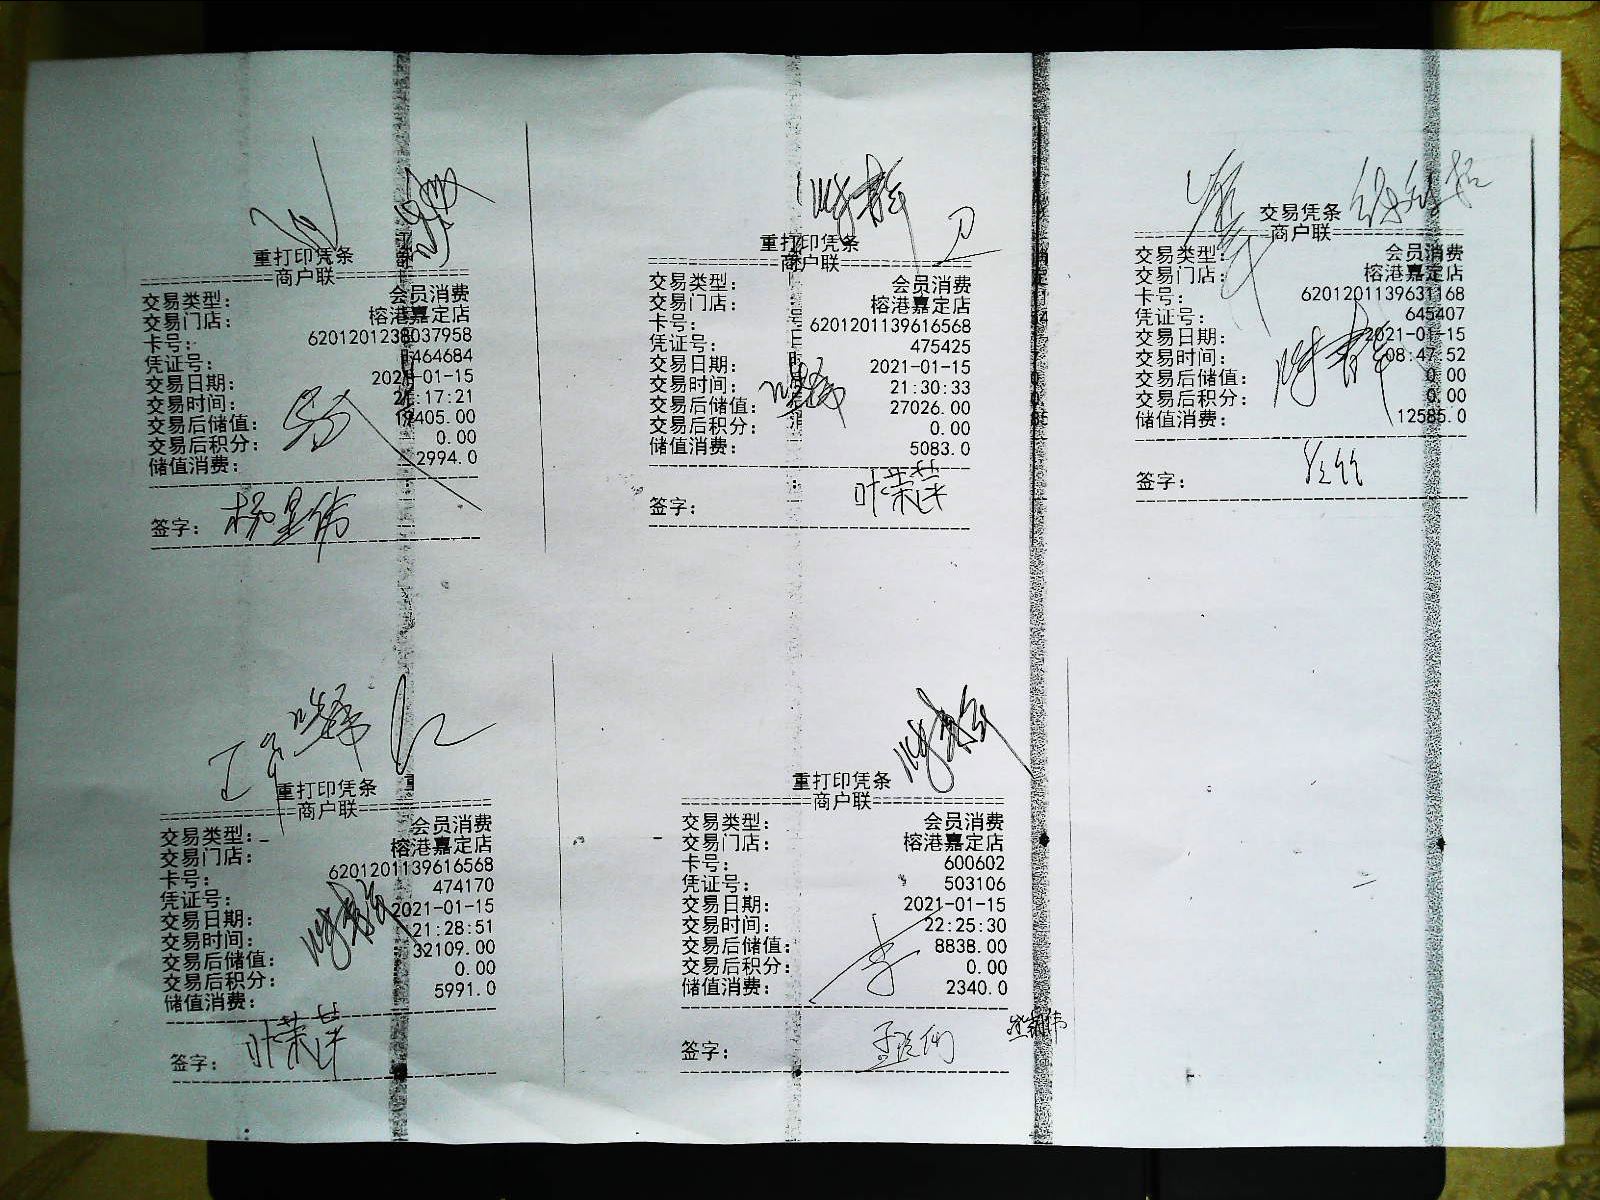 重打印凭条
商户联
交易类型： 会员消费
交易门店： 榕港嘉定店
卡号： 6201201238037958
凭证号： 464684
交易日期： 2021-01-15
交易时间： :17:21
交易后储值： 405.00
交易后积分： 0.00
储值消费： 2994.0
签字：
重打印凭条
商户联
交易类型： 会员消费
交易门店： 榕港嘉定店
卡号： 6201201139616568
凭证号： 475425
交易日期： 2021-01-15
交易时间： 21:30:33
交易后储值： 27026.00
交易后积分： 0.00
储值消费： 5083.0
签字： 叶荣萍
交易凭条
商户联
交易类型： 会员消费
交易门店： 榕港嘉定店
卡号： 6201201139631168
凭证号： 645407
交易日期： 2021-01-15
交易时间： 08:47:52
交易后储值： 0.00
交易后积分： 0.00
储值消费： 12585.0
签字：
重打印凭条
商户联
交易类型： 会员消费
交易门店： 榕港嘉定店
卡号： 6201201139616568
凭证号： 474170
交易日期： 2021-01-15
交易时间： 21:28:51
交易后储值： 32109.00
交易后积分： 0.00
储值消费： 5991.0
签字： 叶荣萍
重打印凭条
商户联
交易类型： 会员消费
交易门店： 榕港嘉定店
卡号： 600602
凭证号： 503106
交易日期： 2021-01-15
交易时间： 22:25:30
交易后储值： 8838.00
交易后积分： 0.00
储值消费： 2340.0
签字：